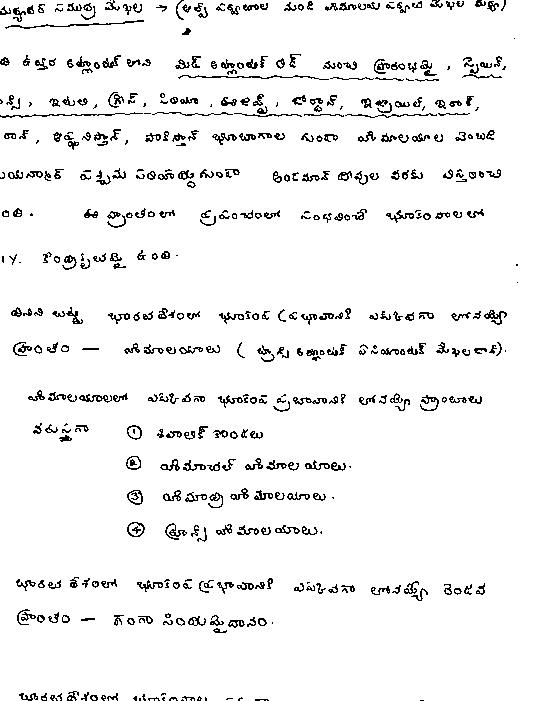 మధ్యధర సముద్ర మేఖల → (ఆల్ప్స్ పర్వతాల నుండి హిమాలయ పర్వత మేఖల మధ్య)
ది ఉత్తర అట్లాంటిక్ లోని మిడ్ అట్లాంటిక్ రిడ్జ్ నుంచి ప్రారంభమై, స్పెయిన్,
ఫ్రాన్స్, ఇటలీ, గ్రీస్, సిరియా, ఈజిప్ట్, జోర్డాన్, ఇజ్రాయిల్, ఇరాక్,
రాన్, ఆఫ్ఘనిస్తాన్, పాకిస్తాన్ భూభాగాల గుండా హిమాలయాల వెంబడి
మయన్మార్ పశ్చిమ సరిహద్దు గుండా అండమాన్ దీవుల వరకు విస్తరించి
ంది. ఈ ప్రాంతంలో ప్రపంచంలో సంభవించే భూకంపాలలో
1%. కేంద్రీకృతమై ఉంది.
దీనిని బట్టి భారతదేశంలో భూకంప ప్రభావానికి ఎక్కువగా లోనయ్యే
ప్రాంతం — హిమాలయాలు (ట్రాన్స్ అట్లాంటిక్ ఏసియాంటిక్ మేఖల కాన).
హిమాలయాలలో ఎక్కువగా భూకంప ప్రభావానికి లోనయ్యే ప్రాంతాలు
వరుసగా ① శివాలిక్ కొండలు
② హిమాచల్ హిమాలయాలు.
③ హిమాద్రి హిమాలయాలు.
④ ట్రాన్స్ హిమాలయాలు.
భారతదేశంలో భూకంప ప్రభావానికి ఎక్కువగా లోనయ్యే రెండవ
ప్రాంతం — గంగా సింధు మైదానం.
భారతదేశంలో భూకంపాల